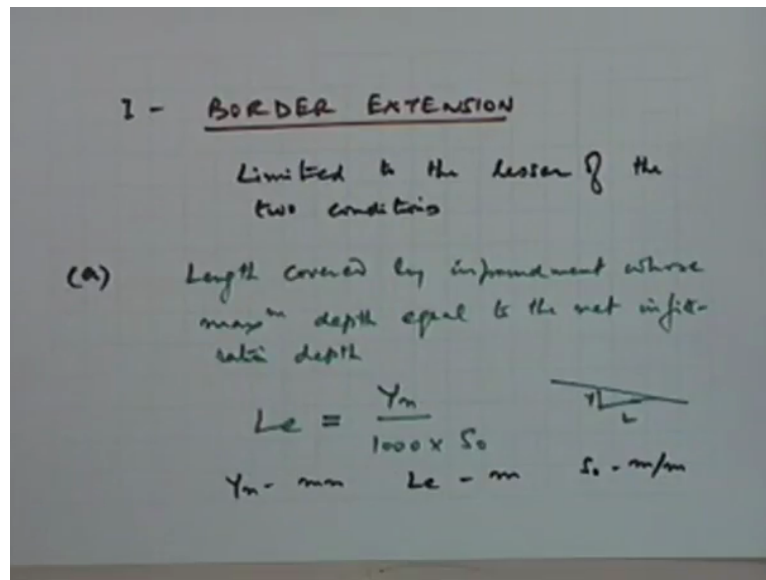 I - BORDER EXTENSION
Limited to the lesser of the
two conditions
(a) Length covered by impoundment whose
max^m depth equal to the net infilt-
ration depth
Le = Yn / 1000 x So
Y
L
Yn - mm Le - m So - m/m